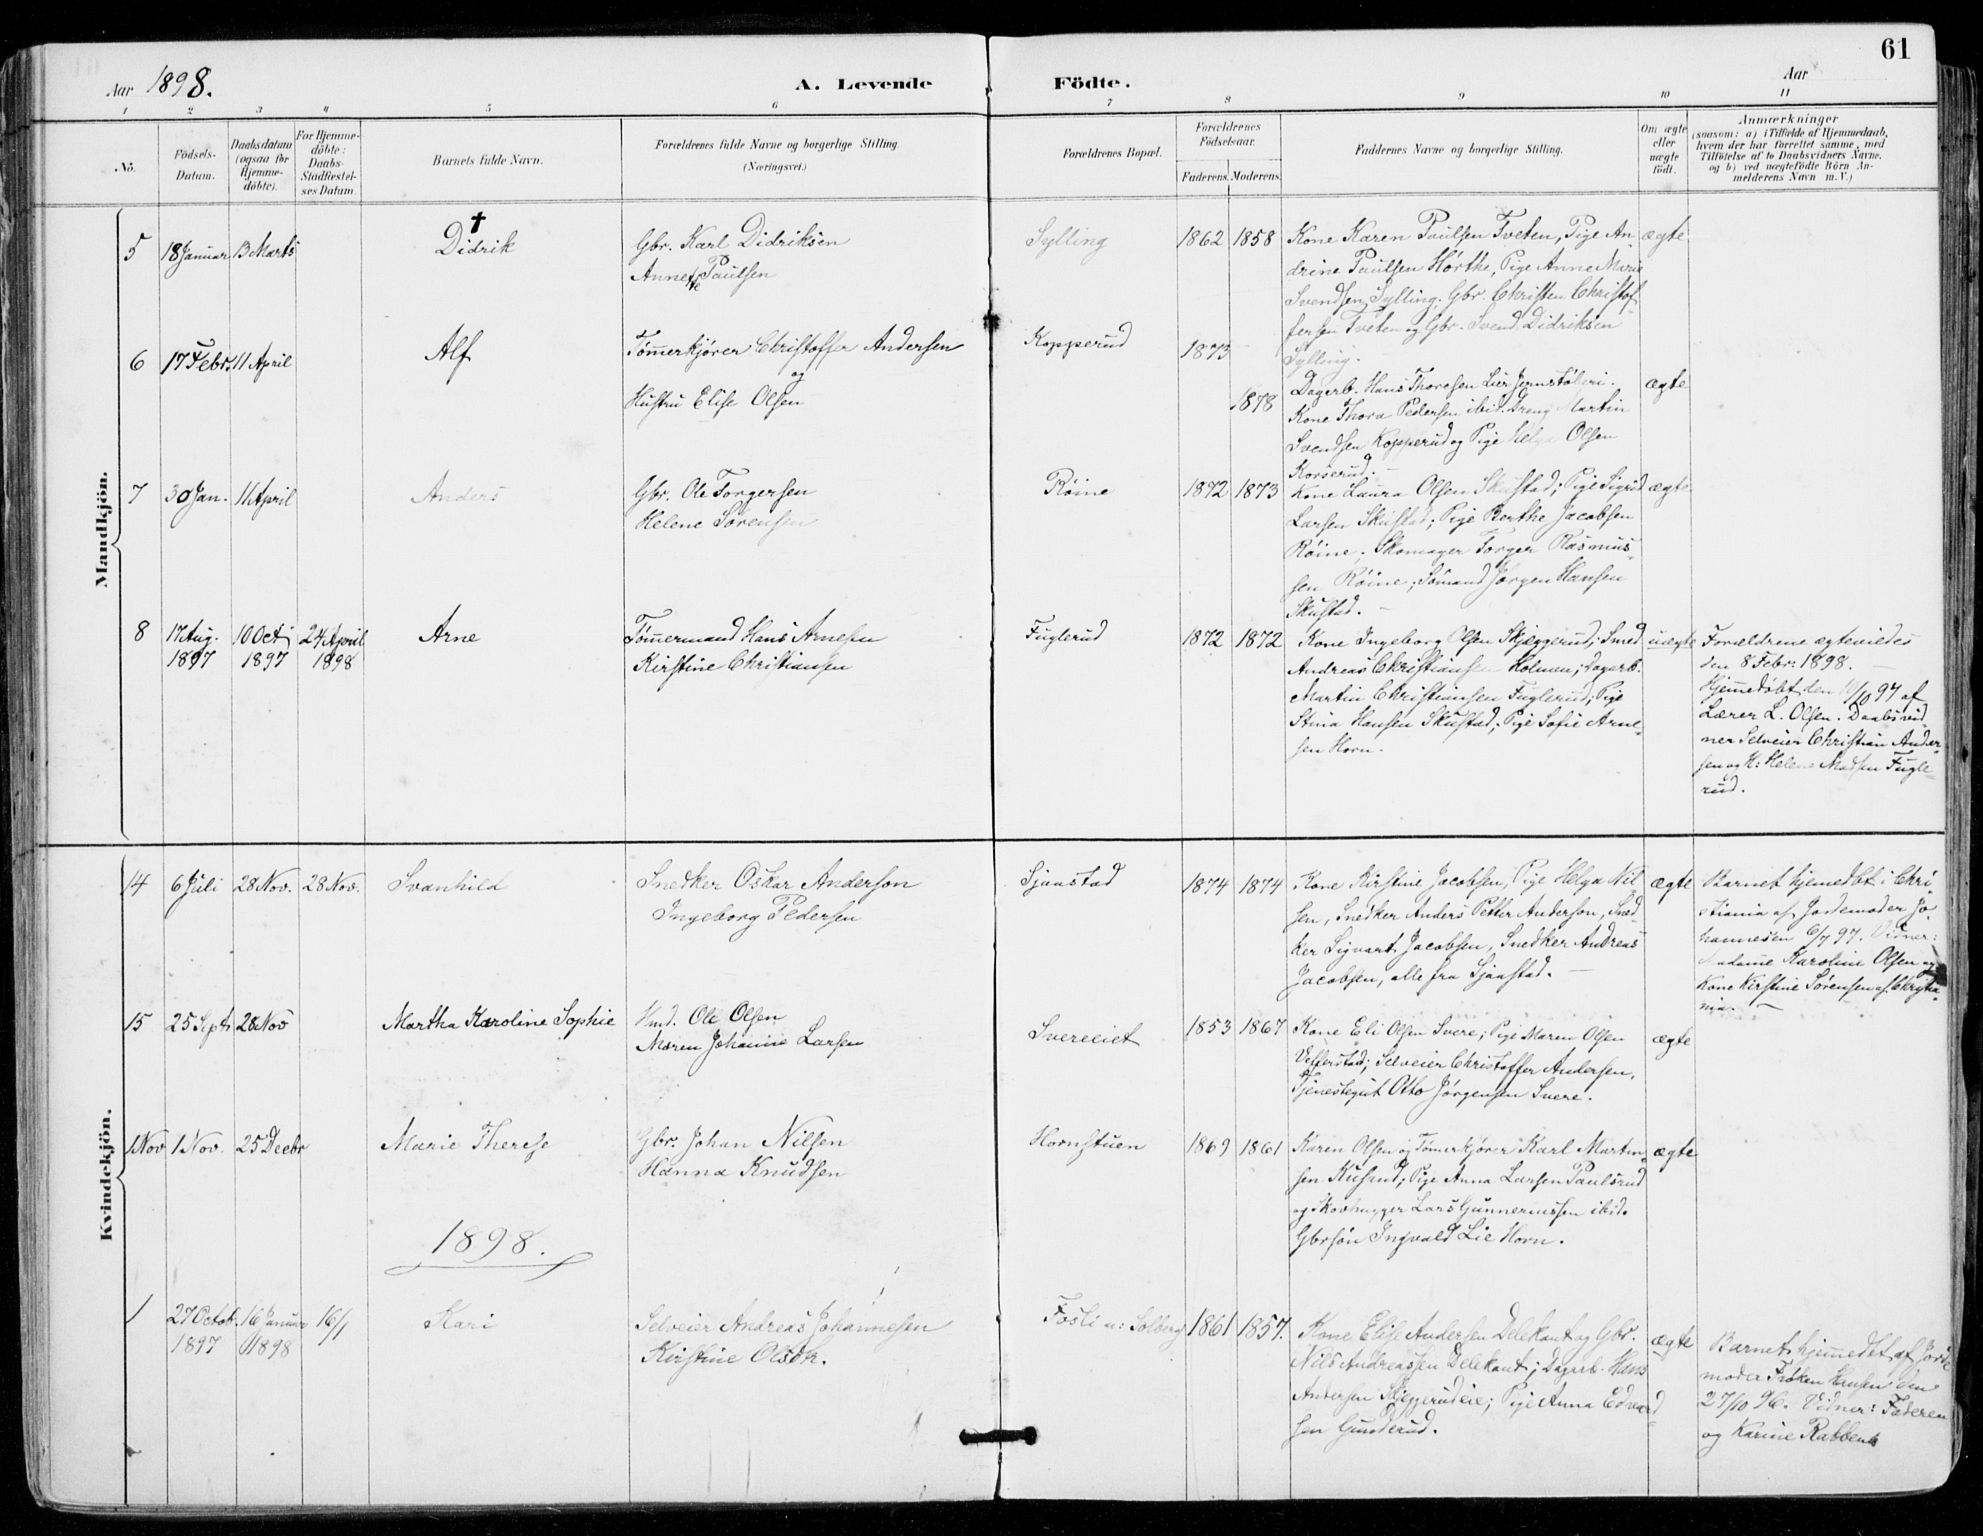 61
Aar 1898.
A. Levende Födte.
Aar
1 2 3 4 5 6 7 8 9 10 11
No.
Födsels-Datum.
Daabsdatum (ogsaa for Hjemme-döbte).
For Hjemme-döbte: Daabs-Stadfæstel-ses Datum.
Barnets fulde Navn.
Forældrenes fulde Navne og borgerlige Stilling.
(Næringsvei.)
Forældrenes Bopæl.
Forældrenes Födselsaar.
Faderens. Moderens.
Faddernes Navne og borgerlige Stilling.
Om ægte eller uægte födt.
Anmærkninger
(saasom: a) i Tilfælde af Hjemmedaab,
hvem der har forrettet samme, med
Tilföielse af to Daabsvidners Navne,
og b) ved uægtefödte Börn An-
melderens Navn m. V.)
Mandkjön.
5 18 Januar 13 Marts † Didrik
Gbr. Karl Didriksen
Annette Paulsen
Sylling 1862 1858
Kone Karen Paulsen Tveten, Pige An-
drine Paulsen Hørthe, Pige Anne Marie
Svendsen Sylling. Gbr. Christen Christof
fersen Tveten og Gbr. Svend Didriksen
Sylling.
ægte
6 17 Febr. 11 April Alf
Tømmerkjører Christoffer Andersen
og
Hustru Elise Olsen
Kopperud 1873
1878
Dagarb. Hans Thoresen Lier Jernstøberi.
Kone Thora Pedersen ibid. Dreng Martin
Svendsen Kopperud og Pige Helga Olsen
Korserud.
ægte
7 30 Jan. 11 April Anders
Gbr. Ole Torgersen
Helene Sørensen
Røine 1872 1873
Kone Laura Olsen Skustad; Pige Sigrid
Larsen Skustad; Pige Berthe Jacobsen
Røine; Skomager Torger Rasmus-
sen Røine; Sømand Jørgen Hansen
Skustad.
ægte
8 17 Aug. 1897 10 Oct 1897 24 April 1898 Arne
Tømmermand Hans Arnesen
Kirstine Christiansen
Fuglerud 1872 1872
Kone Ingeborg Olsen Skjæggerud; Smed
Andreas Christiansen Holmen; Dagarb.
Martin Christiansen Fuglerud; Pige
Stina Hansen Skustad; Pige Sofie Arne-
sen Horn.
uægte
Forældrene ægteviedes
den 8 Febr. 1898.
Hjemmedøbt den 10/10 97 af
Lærer L. Olsen. Daabsvid
ner Selveier Christian Ander-
sen og K: Helene Madsen Fugle-
rud.
Kvindekjön.
14 6 Juli 28 Nov. 28 Nov. Svanhild
Snedker Oskar Anderson
Ingeborg Pedersen
Sjaastad 1874 1874
Kone Kirstine Jacobsen, Pige Helga Nil
sen, Snedker Anders Petter Anderson, Sned-
ker Sigvart Jacobsen, Snedker Andreas
Jacobsen, alle fra Sjaastad.
ægte
Barnet hjemedbt i Chri-
stiania af Jordemoder Jo
hannesen 6/7 97. Vidner:
Madame Karoline Olsen og
Kone Kirstine Sørensen af Christia-
nia.
15 25 Sept 28 Nov Martha Karoline Sophie
Hmd. Ole Olsen
Maren Johanne Larsen
Svereeiet 1853 1867
Kone Eli Olsen Svere; Pige Maren Olsen
Vefferstad; Selveier Christoffer Andersen,
Tjenestegut Otto Jørgensen Svere.
ægte
1 Nov 1 Nov. 25 Decbr Marie Therese
Gbr. Johan Nilsen
Hanna Knudsen
Hornstuen 1869 1861
Karen Olsen og Tømmerkjører Karl Martin-
sen Kusrud; Pige Anna Larsen Paulsrud
og Skovhugger Lars Gunnerussen ibid.
Gbrsøn Ingvald Lie Horn.
ægte
1898.
1 27 Octob. 1897 16 Januar 1898 16/1 Kari
Selveier Andreas Johannesen
Kirstine Olsdtr.
Fosli u: Solberg 1861 1857.
Kone Elise Andersen Delekant og Gbr.
Nils Andreassen Delekant; Dagarb. Hans
Andersen Skjeggerudeie; Pige Anna Edvard
sen Gunderud.
ægte
Barnet hjemmedbt af Jorde
moder Frøken Hansen den
27/10 96. Vidner: Faderen
og Karine Rabben